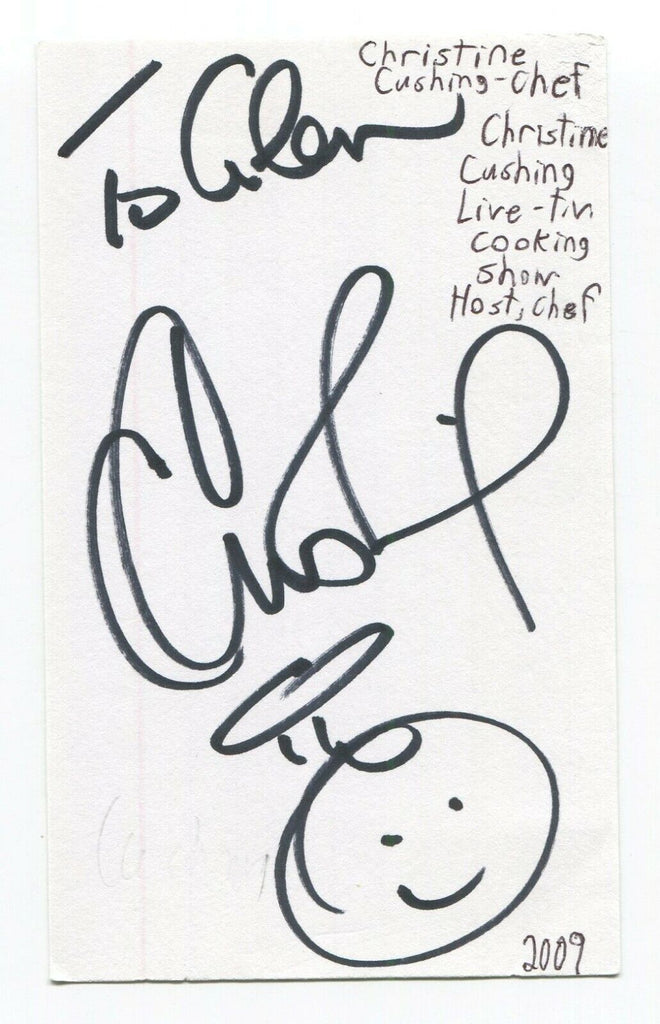 To Glen
Christine
Cushing-chef
Christine
Cushing
Live -
cooking
show
Host, chef
2009